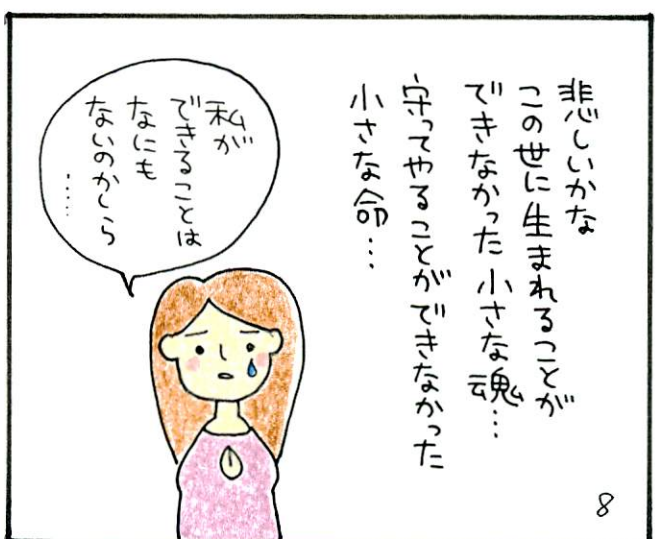 悲しいかな
この世に生まれることが
できなかった小さな魂…
守ってやることができなかった
小さな命…
私が
できることは
なにも
ないのかしら
……
8